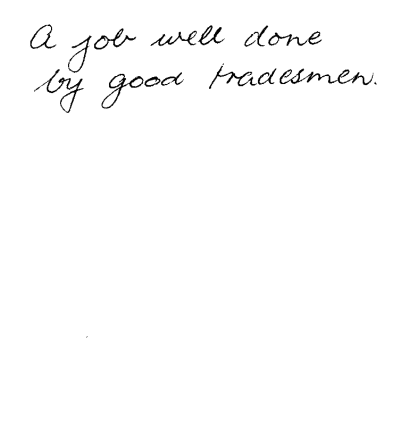 A job well done
by good tradesmen.